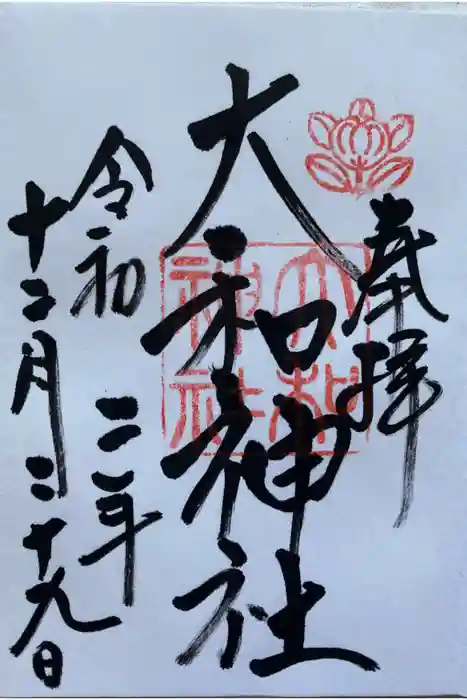 奉拝
大和神社
大和
神社
令和三年
十二月二十九日